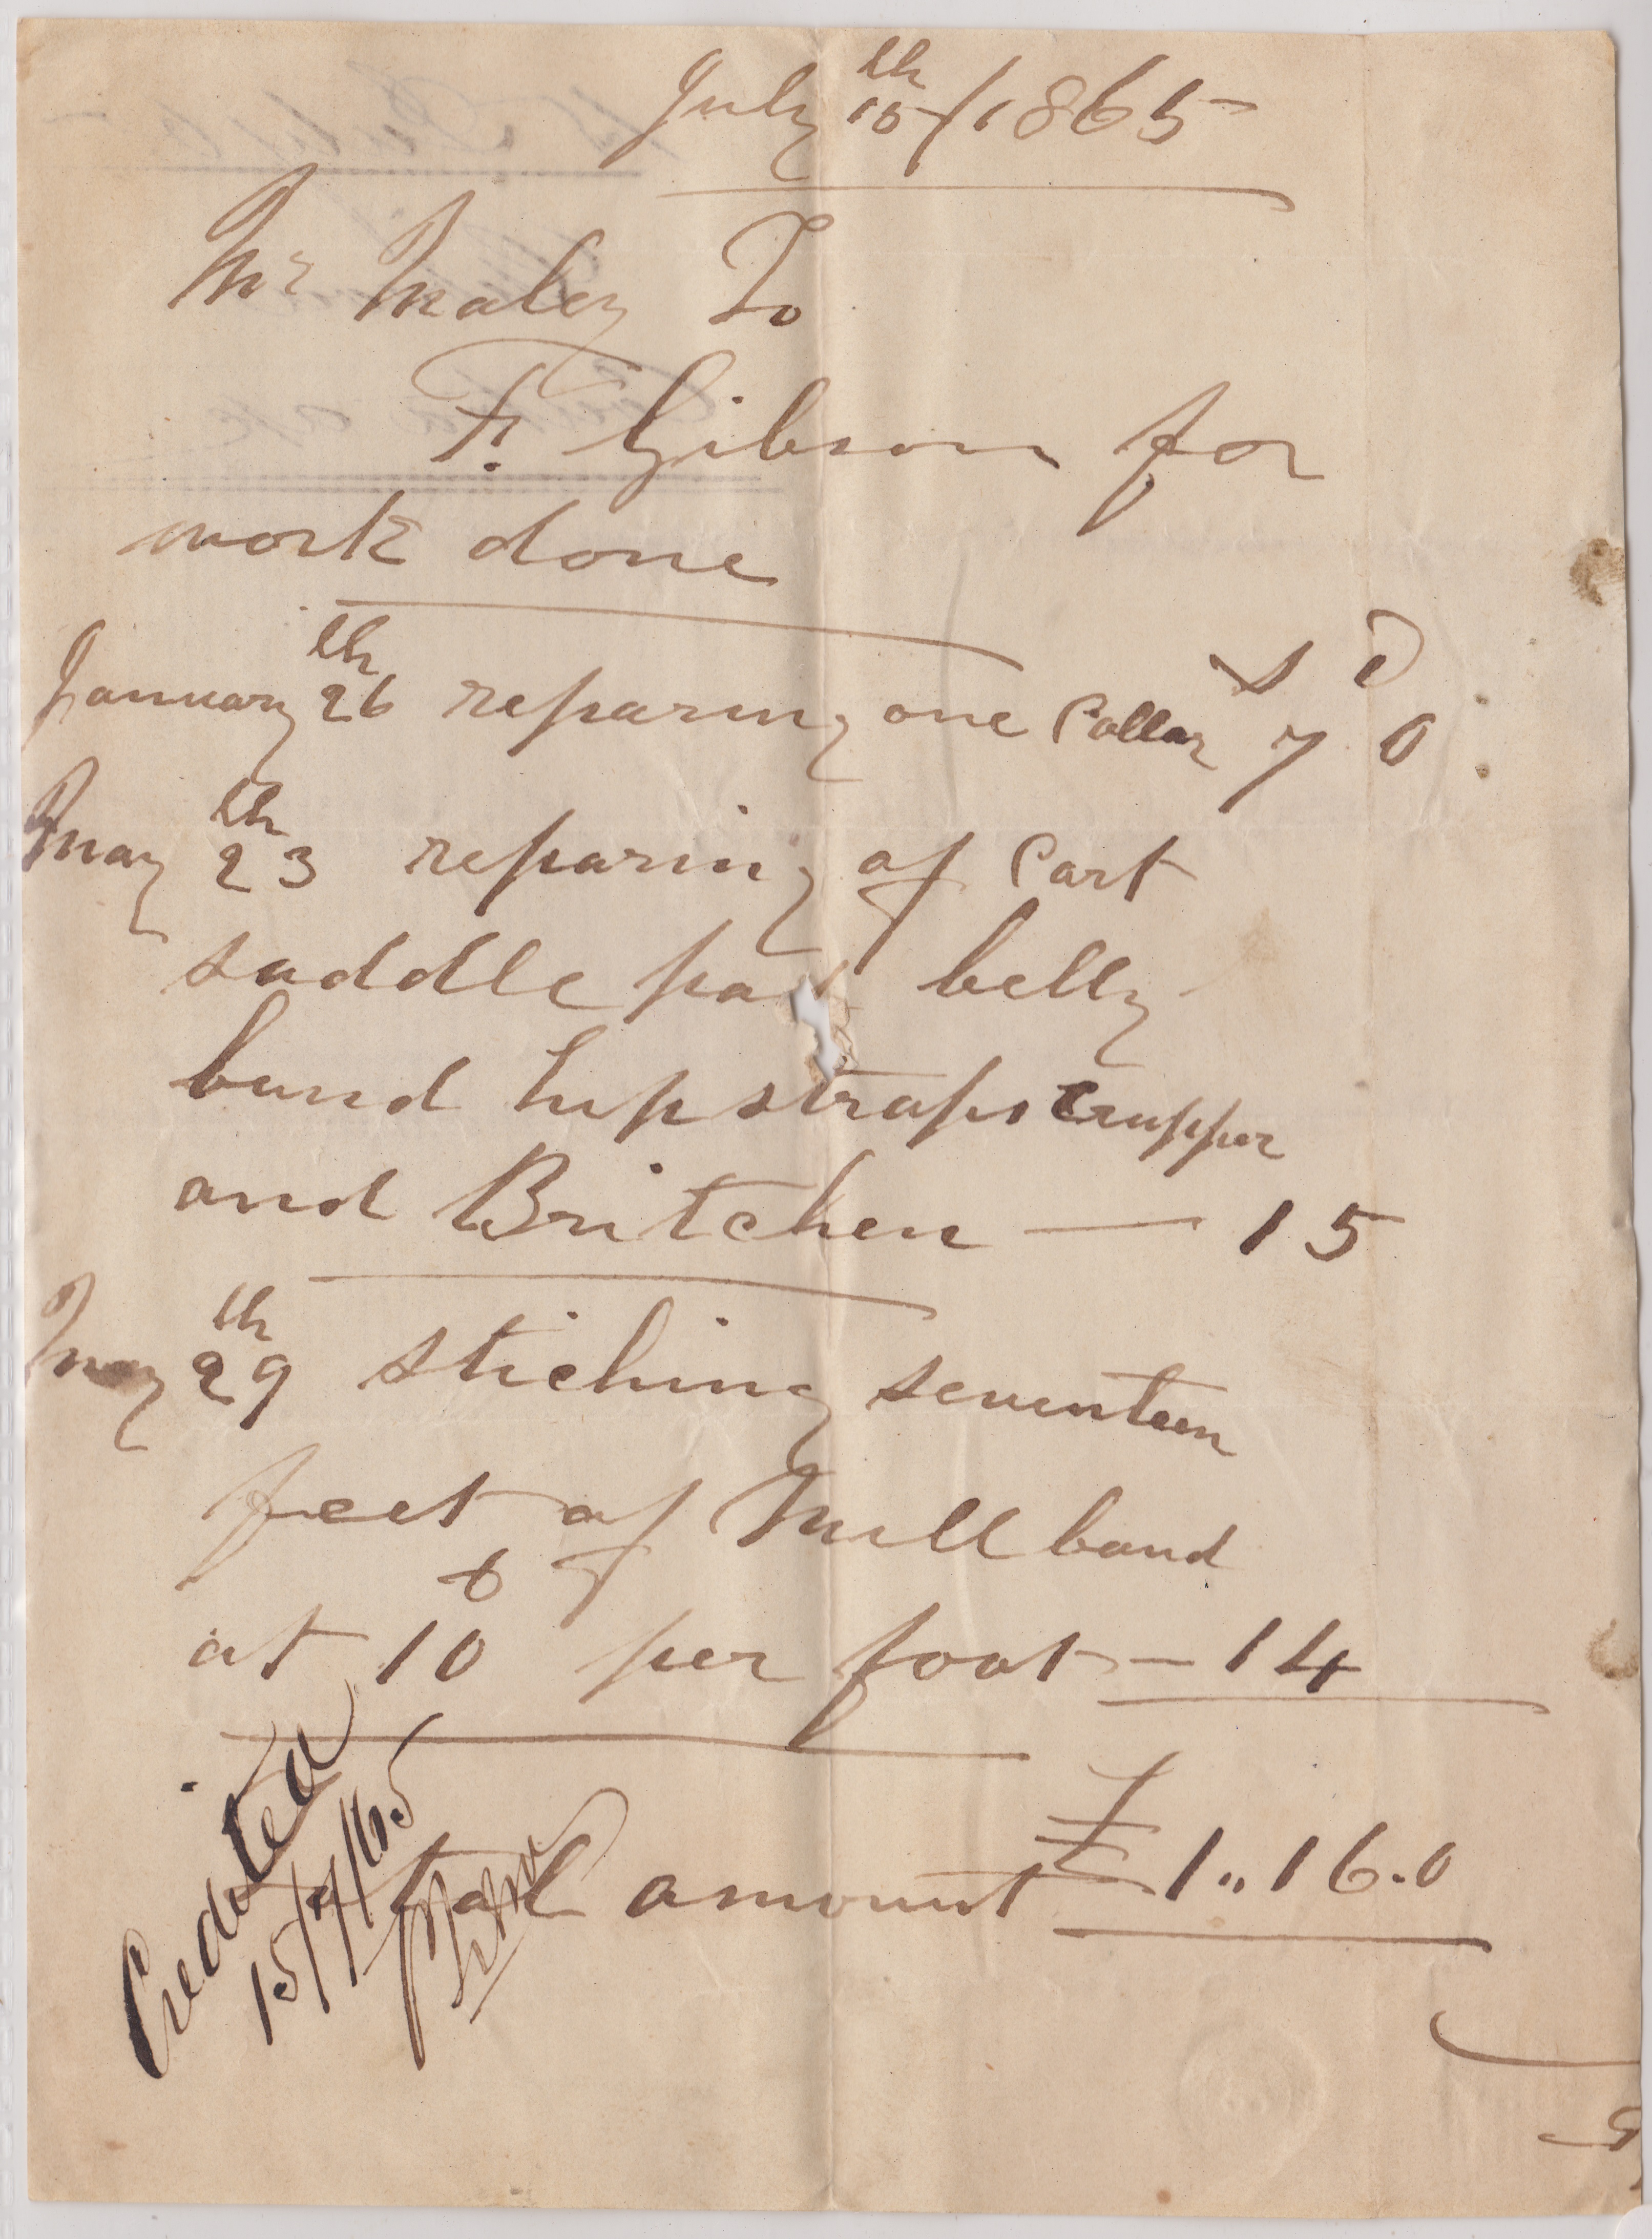 July 15th/1865
Mr Maley To
F. Gibson for
work done
s D
January 26th reparing one Collar 7 0
May 23th reparing of Cart
saddle pad belly
band hip straps crupper
and Britchen — 15
May 29th stiching seventeen
feet of Mill band
at 10 d per foot — 14
total amount £1..16.0
Credited
15/7/65